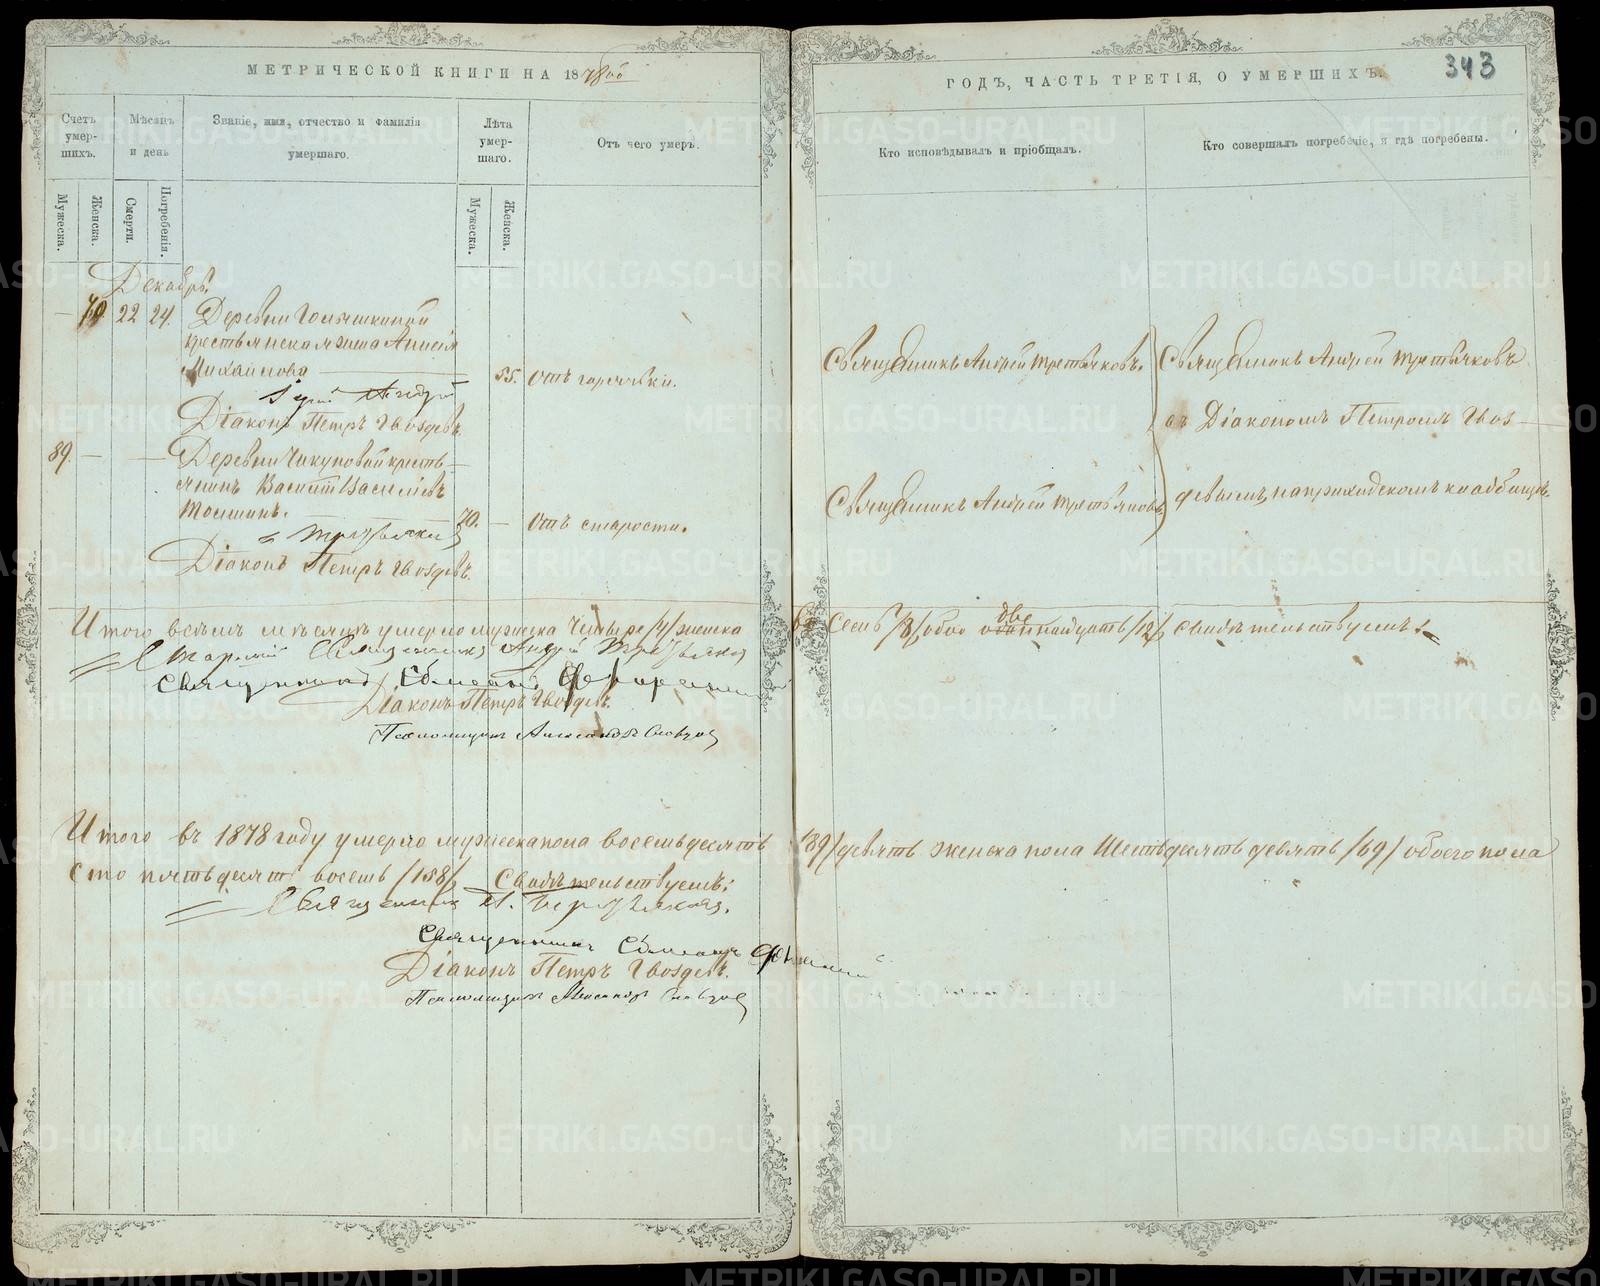 МЕТРИЧЕСКОЙ КНИГИ НА 1878 ой
ГОДЪ, ЧАСТЬ ТРЕТІЯ, О УМЕРШИХЪ.
343
Счетъ умер-шихъ.
Мужеска.
Женска.
Мѣсяцъ и день
Смерти.
Погребенія.
Званіе, имя, отчество и фамилія умершаго.
Лѣта умер-шаго.
Мужеска.
Женска.
Отъ чего умеръ.
Кто исповѣдывалъ и пріобщалъ.
Кто совершалъ погребеніе, и гдѣ погребены.
Декабрь.
22 24. Деревни
крестьянская жена Анисія
Михайлова 55. Отъ горячки.
Священникъ Андрей Третьяковъ.
Священникъ Андрей Третьяковъ
Діаконъ Петръ Гвоздевъ.
съ Діакономъ Петромъ Гвоз
89. Деревни Чикуновой кресть-
янинъ Василій Васильевъ
70. Отъ старости.
Священникъ Андрей Третьяковъ
девымъ, на приходскомъ кладбищѣ.
Діаконъ Петръ Гвоздевъ.
Итого въ семъ мѣсяцѣ умерло мужеска четыре /4/ женска
/8/ обоего две надцать /12/ свидѣтельствуемъ:
Священникъ
Діаконъ Петръ Гвоздевъ.
Псаломщикъ Александръ Словцов
Итого въ 1878 году умерло мужеска пола восемьдесятъ
/89/ девять женска пола шестьдесятъ девять /69/ обоего пола
сто пятьдесятъ восемь /158/, Свидѣтельствуемъ:
Священникъ А. Третьяков.
Священникъ
Діаконъ Петръ Гвоздевъ.
Псаломщикъ Александръ Словцов
METRIKI.GASO-URAL.RU